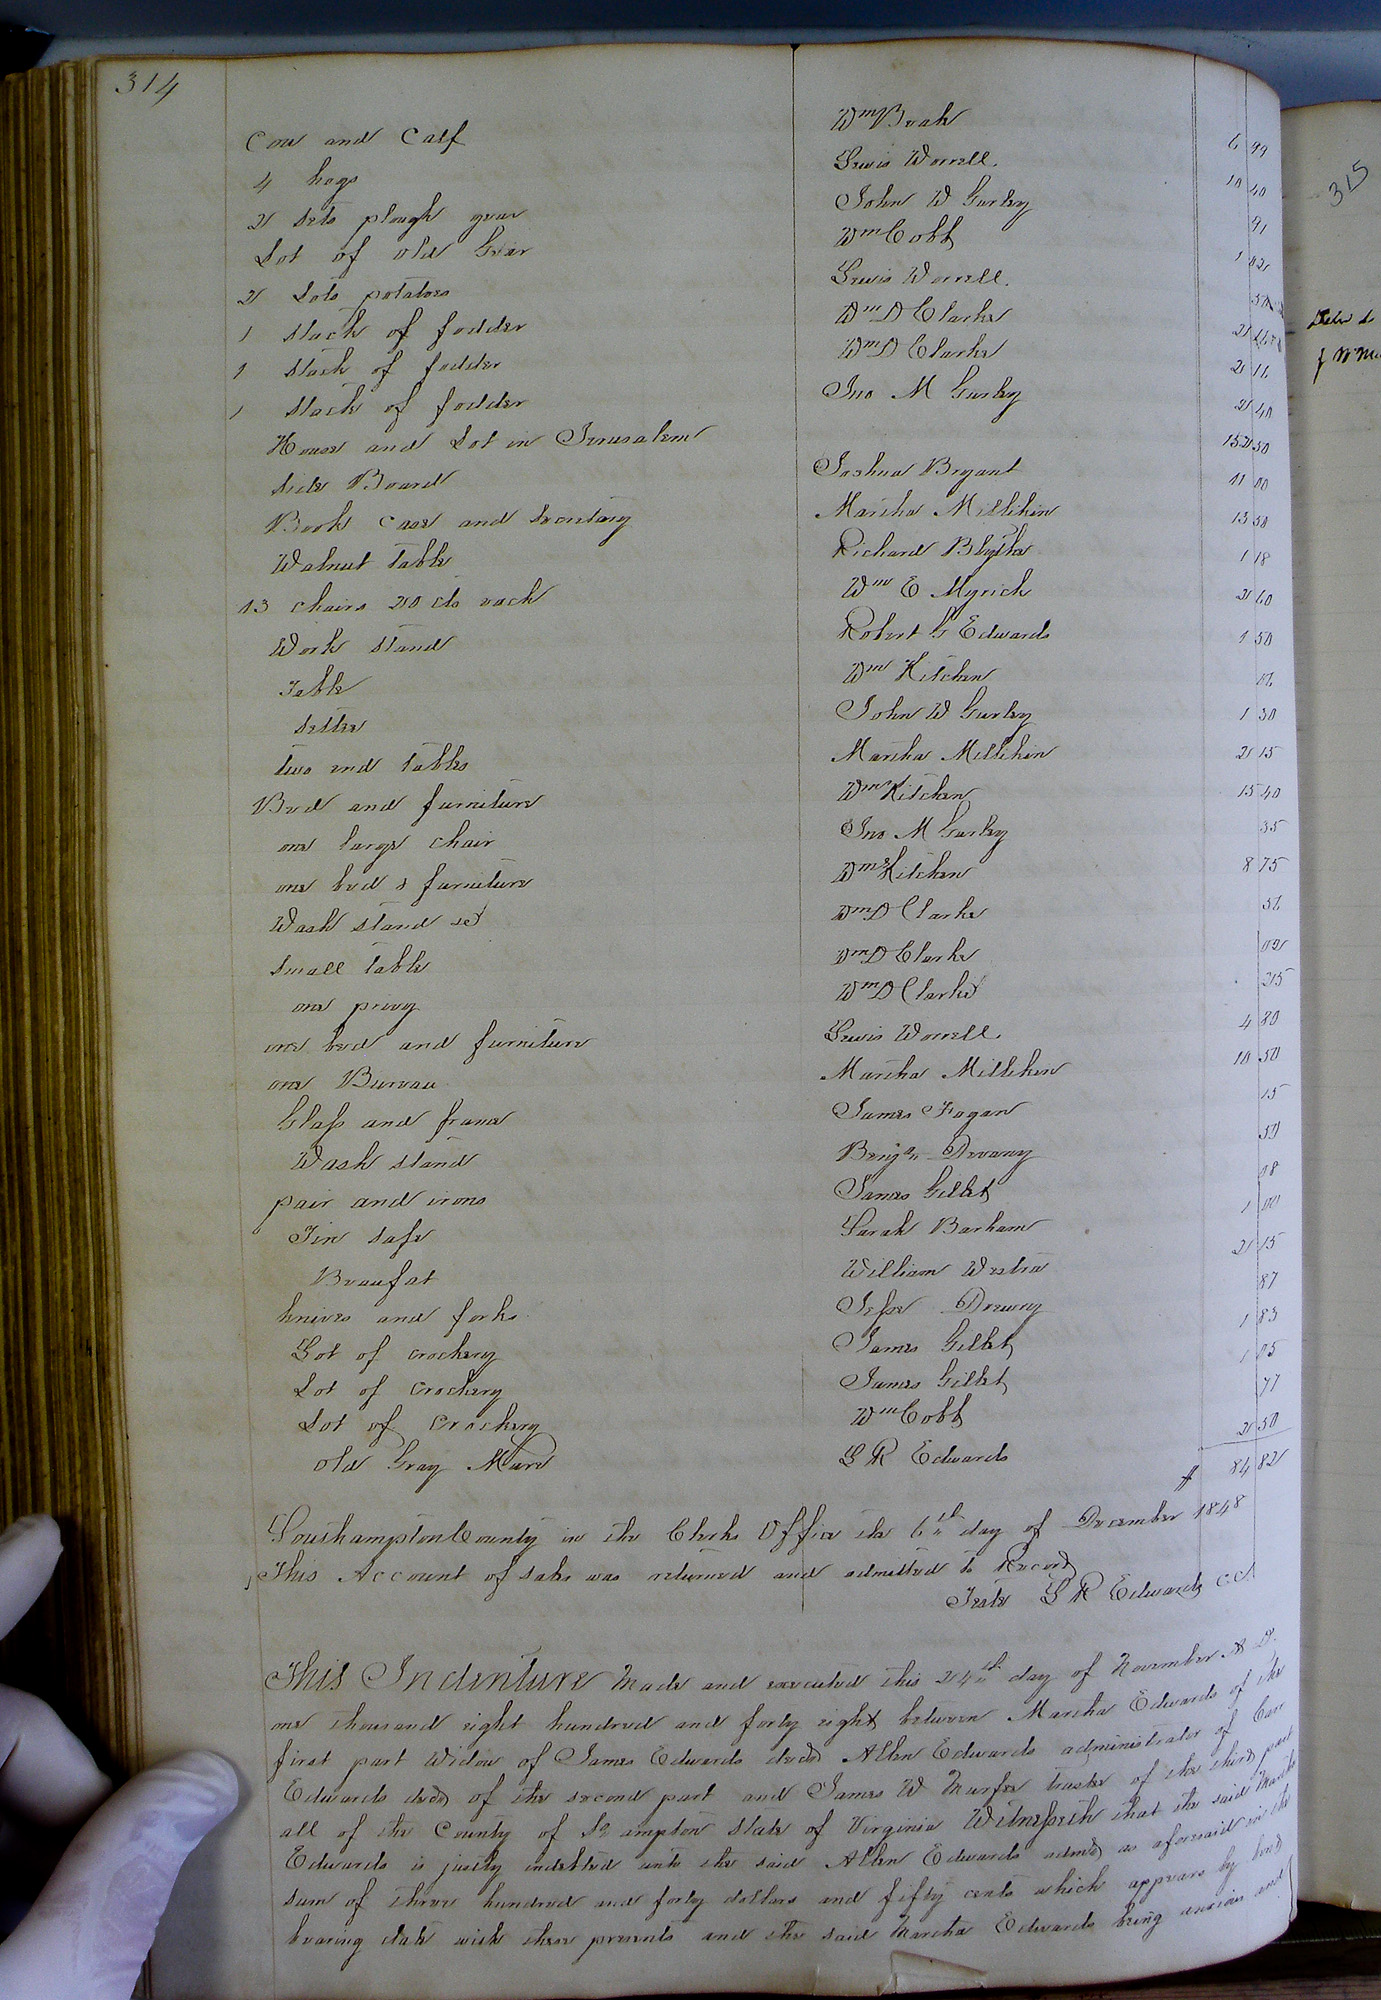 314
Cow and Calf Wm Beale 6 99
4 hogs Lewis Worrell. 10 40
2 sets plough gear John W Gurley 91
Lot of old Gear Wm Cobb 1 02
2 Lots potatoes Lewis Worrell.
1 stack of fodder Wm D Clarke 2
1 stack of fodder Wm D Clarke 2 16
1 stack of fodder Jno M Gurley 2 40
House and Lot in Jerusalem 152 50
Side Board Joshua Bryant 11 00
Book case and Secretary Martha Millikin 13 50
Walnut table Richard Blythe 1 18
13 chairs 20 cts each Wm E Myrick 2 60
Work stand Robert G Edwards 1 50
Table Wm Kitchen 06
Settee John W Gurley 1 30
two end tables Martha Millikin 2 15
Bed and furniture Wm Kitchen 15 40
one large chair Jno M Gurley 35
one bed & furniture Wm Kitchen 8 75
Wash stand set Wm D Clarke 56
Small table Wm D Clarke 02
one privy Wm D Clarke 25
one bed and furniture Lewis Worrell. 4 80
one Bureau Martha Milliken 10 50
Glass and frame James Fagan 15
Wash stand Benjn Devany 50
pair and irons James Gillet 08
Tin Safe Sarah Barham 1 00
Beaufat William Westra 2 15
knives and forks Jesse Drewry 87
Lot of crockery James Gillet 1 83
Lot of Crockery James Gillet 1 05
Lot of Crockery Wm Cobb 77
old Gray Mare L R Edwards 2 50
$ 84 82
Southampton County in the Clerks Office the 6th day of December 1848
This Account of sales was returned and admitted to Record
Teste L R Edwards C.C.
This Indenture Made and executed this 24th day of November A D.
one thousand eight hundred and forty eight between Martha Edwards of the
first part Widow of James Edwards decd Allen Edwards administrator of Car
Edwards decd of the second part and James W Murfee trustee of the third part
all of the County of So ampton State of Virginia Witnesseth that the said Martha
Edwards is justly indebted unto the said Allen Edwards admr as aforesaid in the
sum of three hundred and forty dollars and fifty cents which appears by bond
bearing date with these presents and the said Martha Edwards being anxious and
315